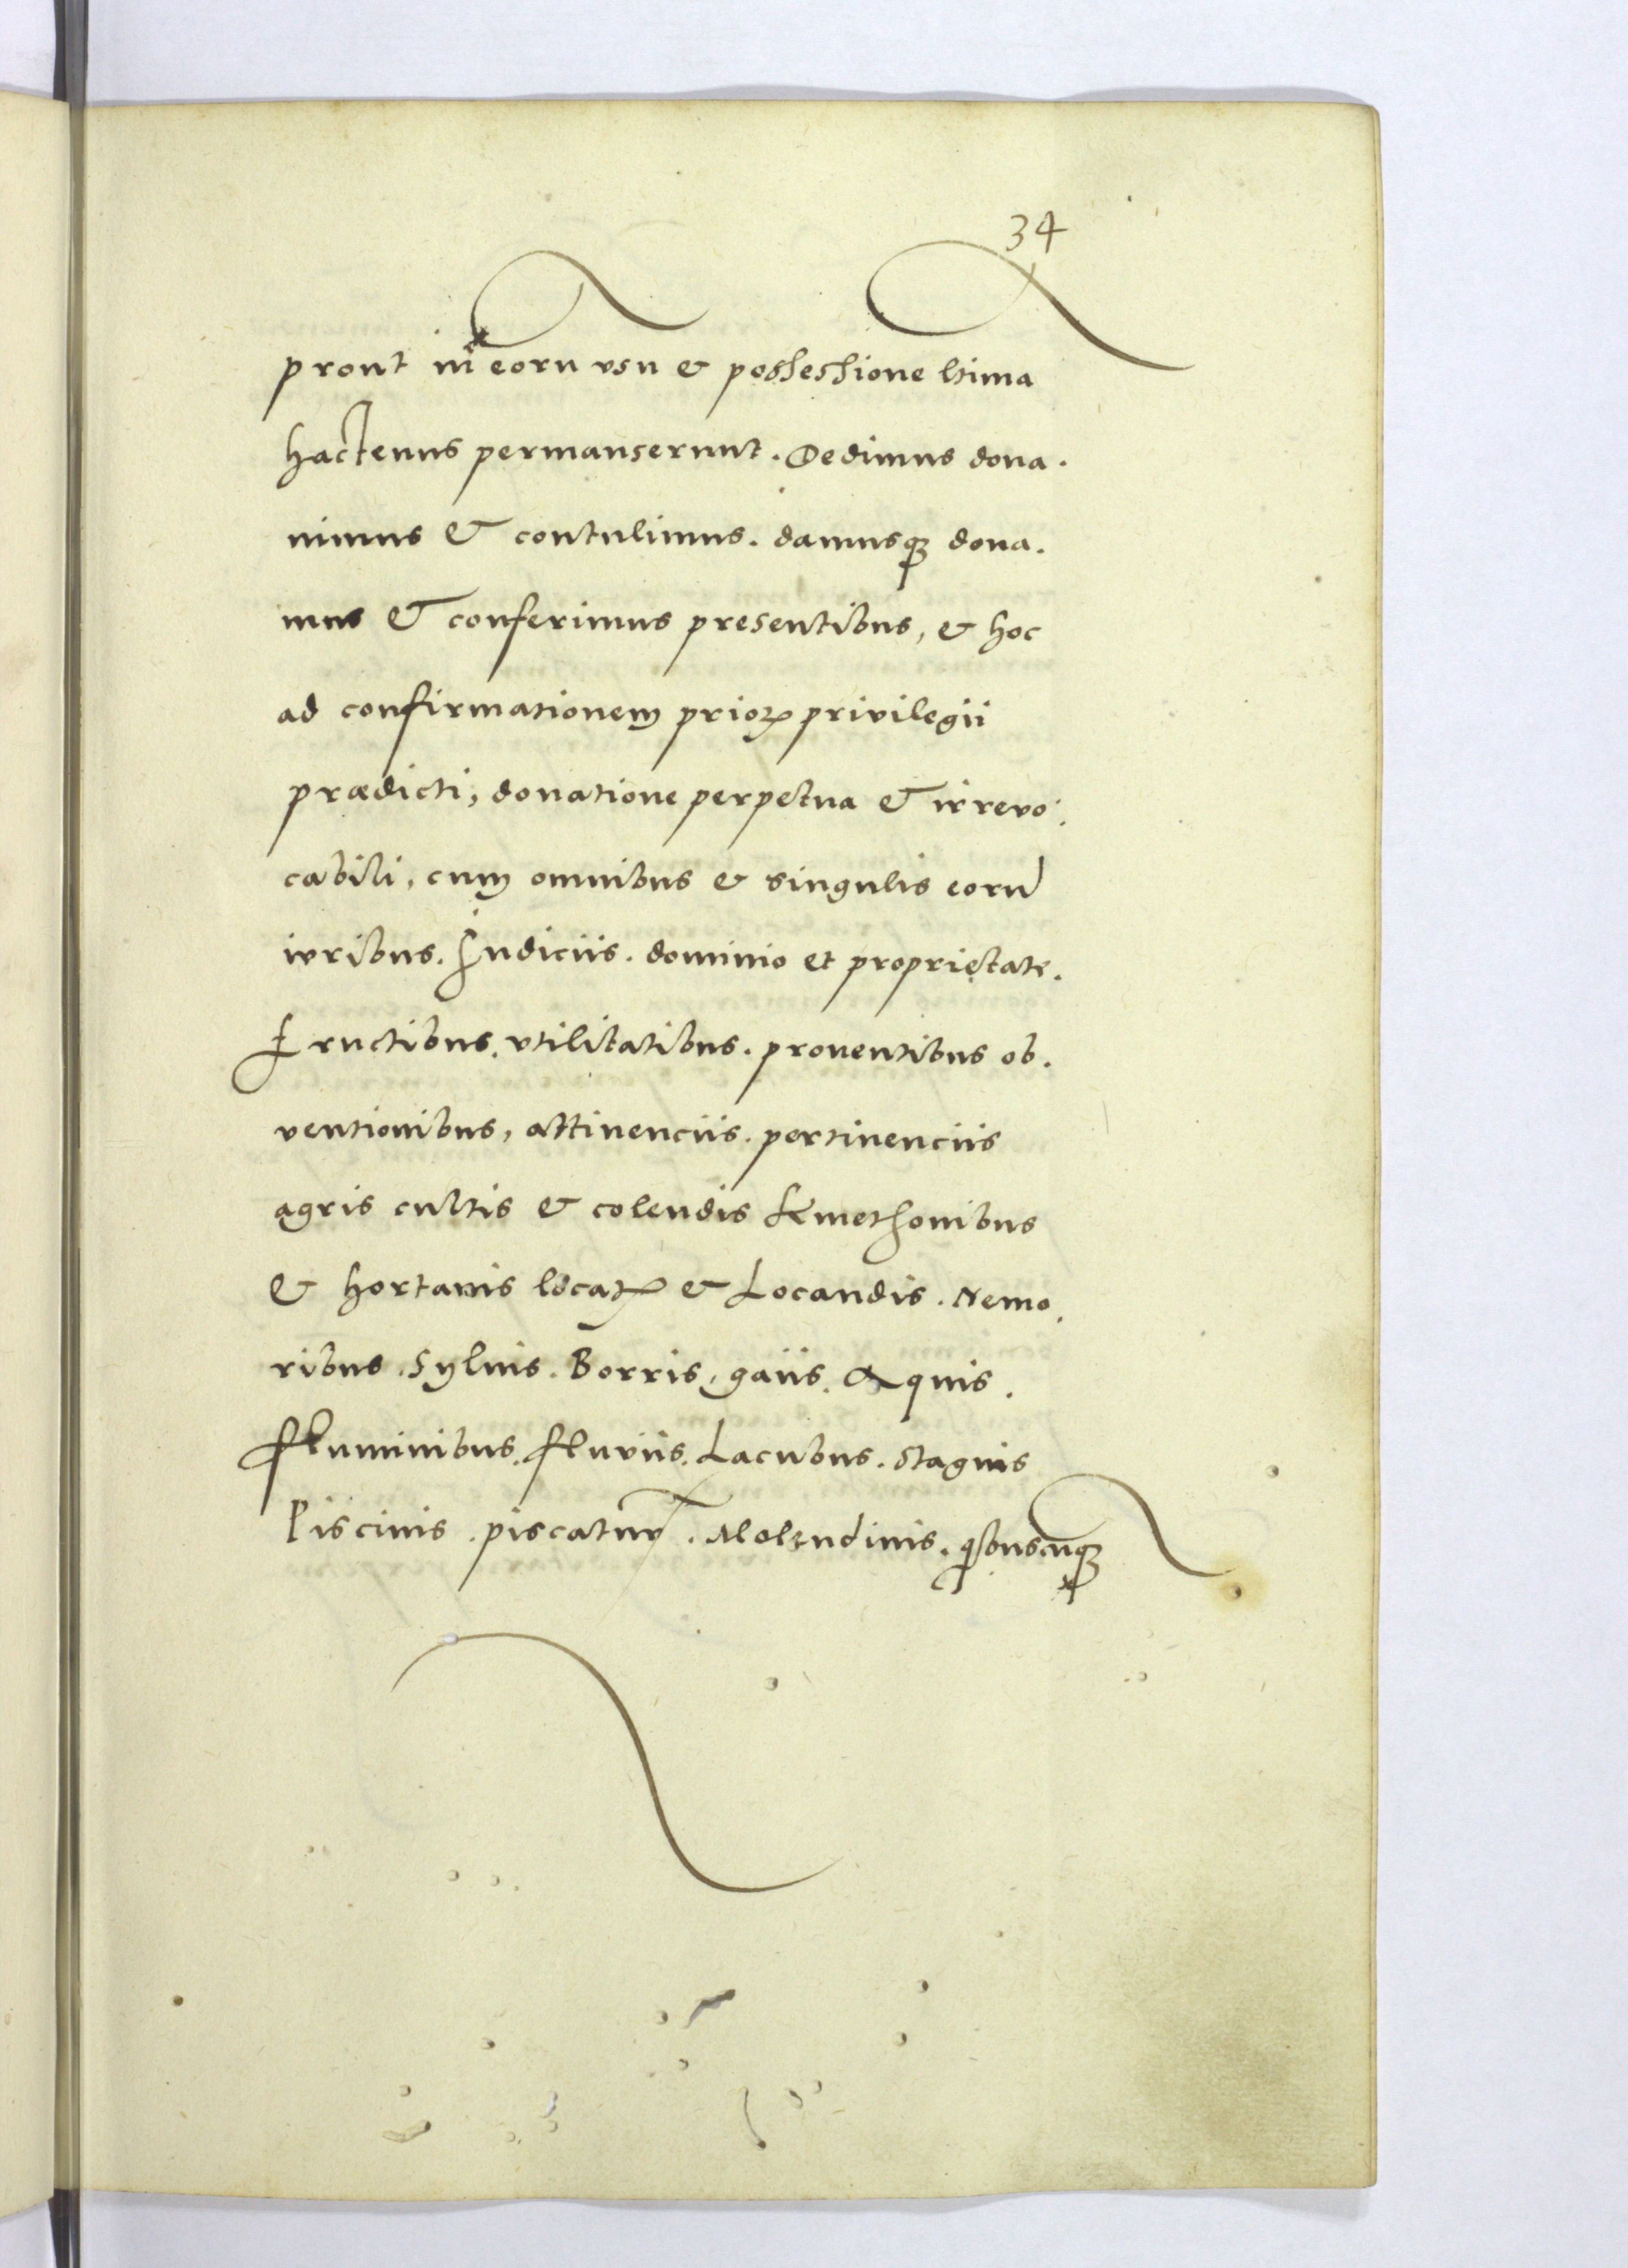 34
prout in eoru usu & possessione ltima
hactenus permanserunt. Dedimus dona.
uimus & contulimus. damusqꝫ dona.
mus & conferimus presentibus, & hoc
ad confirmationem prioꝝ privilegii
prædicti, donatione perpetua & irrevo.
cabili, cum omnibus & singulis eorū
iuribus. Iudiciis. dominio et proprietate.
Fructibus. vtilitatibus. prouentibus ob.
ventionibus, attinenciis. pertinenciis
agris cultis & colendis Kmethonibus
& hortanis locatꝭ & Locandis. Nemo.
ribus. Syluis. Borris, gaiis. Aquis.
Fluminibus. fluviis. Lacubus. Stagnis
Piscinis. piscatur. Molendinis. qꝫbuscūqꝫ